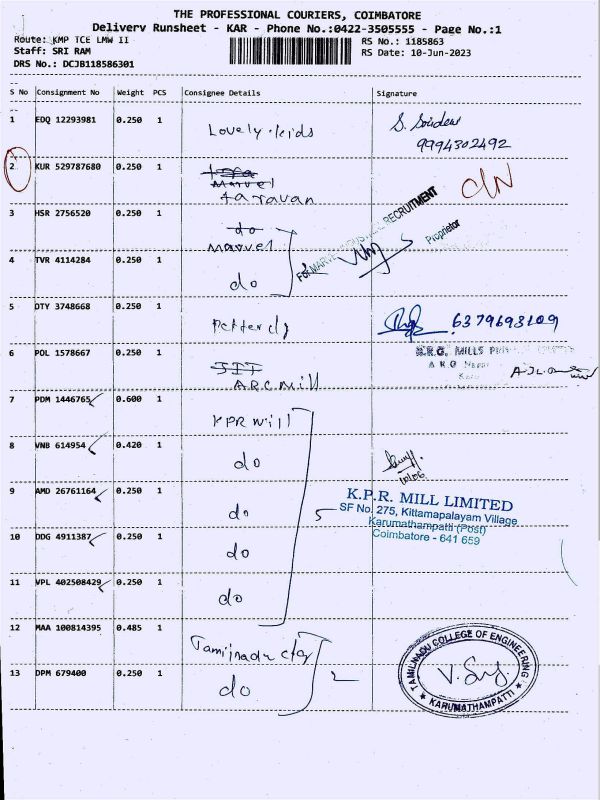 THE PROFESSIONAL COURIERS, COIMBATORE
Delivery Runsheet - KAR - Phone No.:0422-3505555 - Page No.:1
Route: KMP TCE LMW II
RS No.: 1185863
Staff: SRI RAM
RS Date: 10-Jun-2023
DRS No.: DCJB118586301
S No Consignment No Weight PCS Consignee Details Signature
1 EDQ 12293981 0.250 1 Lovely kids
9994302492
2 KUR 529787680 0.250 1
Marvel
3 HSR 2756520 0.250 1 do
Marvel
RECRUITMENT
Proprietor
4 TVR 4114284 0.250 1 do
5 DTY 3748668 0.250 1
6379693109
6 POL 1578667 0.250 1
ARC Mill
MILLS
7 PDM 1446765 0.600 1 KPR Mill
8 VNB 614954 0.420 1 do
9 AMD 26761164 0.250 1 do 5
K.P.R. MILL LIMITED
SF No. 275, Kittamapalayam Village
Karumathampatti (Post)
Coimbatore - 641 659
10 DDG 4911387 0.250 1 do
11 VPL 402508429 0.250 1 do
12 MAA 100814395 0.485 1 Tamilnadu clg
13 DPM 679400 0.250 1 do 2
TAMILNADU COLLEGE OF ENGINEERING
KARUMATHAMPATTI